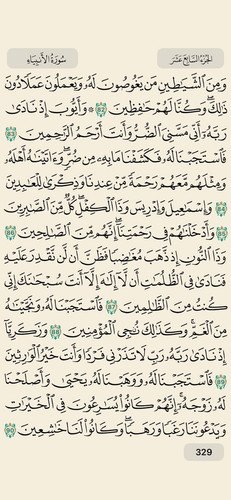 سُورَةُ الأَنبِيَاءِ
الجُزْءُ السَّابِعَ عَشَرَ
وَمِنَ ٱلشَّيَٰطِينِ مَن يَغُوصُونَ لَهُۥ وَيَعْمَلُونَ عَمَلًا دُونَ
ذَٰلِكَۖ وَكُنَّا لَهُمْ حَٰفِظِينَ ٨٢ ۞ وَأَيُّوبَ إِذْ نَادَىٰ
رَبَّهُۥٓ أَنِّي مَسَّنِيَ ٱلضُّرُّ وَأَنتَ أَرْحَمُ ٱلرَّٰحِمِينَ ٨٣
فَٱسْتَجَبْنَا لَهُۥ فَكَشَفْنَا مَا بِهِۦ مِن ضُرٍّۖ وَءَاتَيْنَٰهُ أَهْلَهُۥ
وَمِثْلَهُم مَّعَهُمْ رَحْمَةً مِّنْ عِندِنَا وَذِكْرَىٰ لِلْعَٰبِدِينَ
٨٤ وَإِسْمَٰعِيلَ وَإِدْرِيسَ وَذَا ٱلْكِفْلِۖ كُلٌّ مِّنَ ٱلصَّٰبِرِينَ
٨٥ وَأَدْخَلْنَٰهُمْ فِي رَحْمَتِنَآۖ إِنَّهُم مِّنَ ٱلصَّٰلِحِينَ ٨٦
وَذَا ٱلنُّونِ إِذ ذَّهَبَ مُغَٰضِبًا فَظَنَّ أَن لَّن نَّقْدِرَ عَلَيْهِ
فَنَادَىٰ فِي ٱلظُّلُمَٰتِ أَن لَّآ إِلَٰهَ إِلَّآ أَنتَ سُبْحَٰنَكَ إِنِّي
كُنتُ مِنَ ٱلظَّٰلِمِينَ ٨٧ فَٱسْتَجَبْنَا لَهُۥ وَنَجَّيْنَٰهُ
مِنَ ٱلْغَمِّۚ وَكَذَٰلِكَ نُۨجِي ٱلْمُؤْمِنِينَ ٨٨ وَزَكَرِيَّآ
إِذْ نَادَىٰ رَبَّهُۥ رَبِّ لَا تَذَرْنِي فَرْدًا وَأَنتَ خَيْرُ ٱلْوَٰرِثِينَ
٨٩ فَٱسْتَجَبْنَا لَهُۥ وَوَهَبْنَا لَهُۥ يَحْيَىٰ وَأَصْلَحْنَا
لَهُۥ زَوْجَهُۥٓۚ إِنَّهُمْ كَانُوا۟ يُسَٰرِعُونَ فِي ٱلْخَيْرَٰتِ
وَيَدْعُونَنَا رَغَبًا وَرَهَبًاۖ وَكَانُوا۟ لَنَا خَٰشِعِينَ ٩٠
329